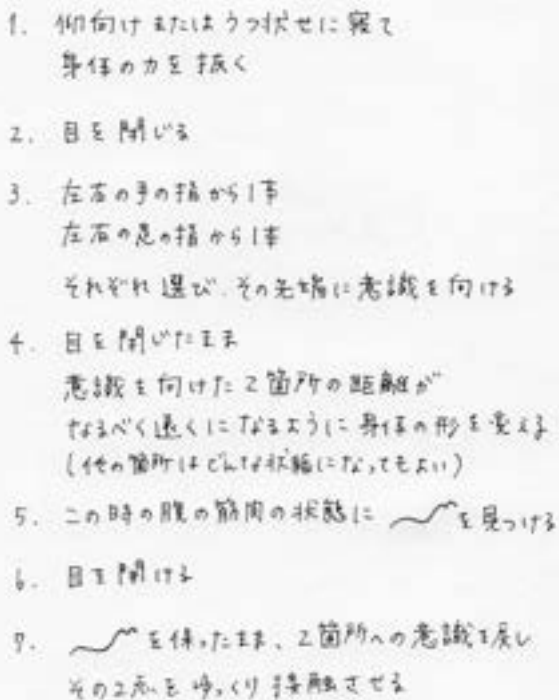 1. 仰向けまたはうつ伏せに寝て
身体の力を抜く
2. 目を閉じる
3. 左右の手の指から1本
左右の足の指から1本
それぞれ選び、その先端に意識を向ける
4. 目を閉じたまま
意識を向けた2箇所の距離が
なるべく遠くになるように身体の形を変える
(他の箇所はどんな状態になってもよい)
5. この時の腹の筋肉の状態に を見つける
6. 目を開ける
7. を保ったまま、2箇所への意識を戻し
その2点をゆっくり接触させる